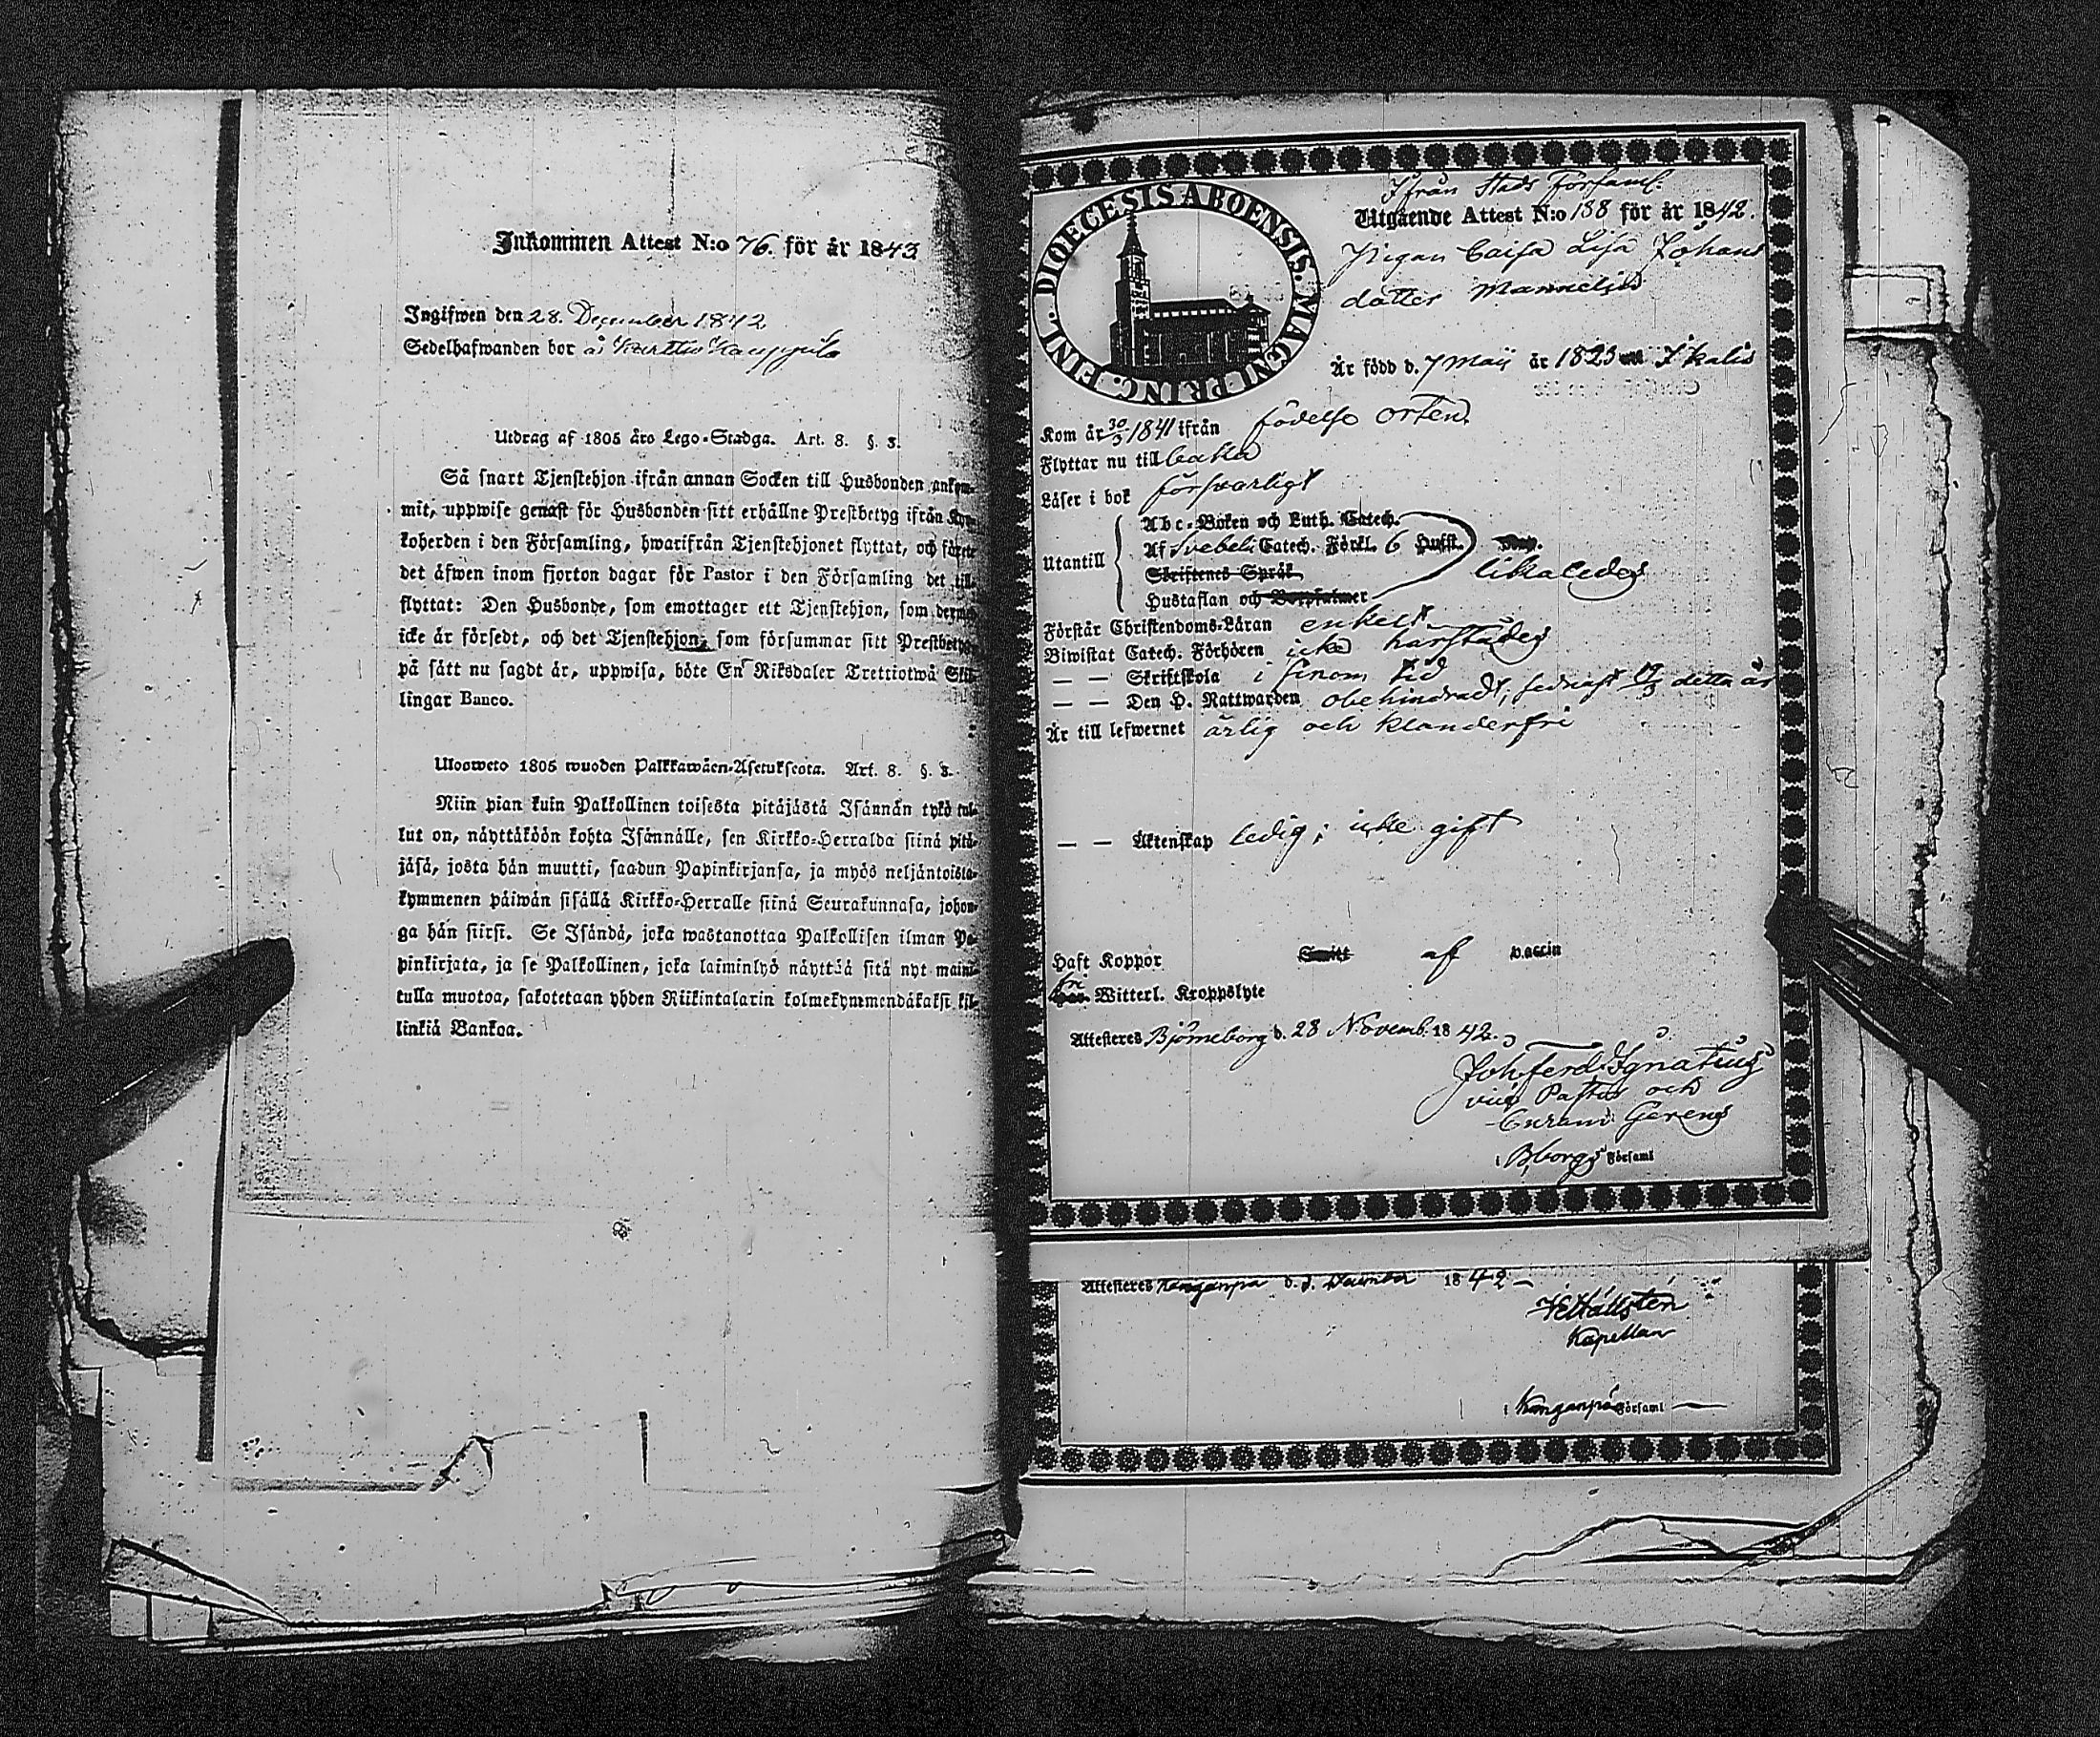 Inkommen Attest N:o 76. för år 1843
Ingifwen den 28. December 1842
Sedelhafwanden bor å Kauppila
Utdrag af 1805 års Lego-Stadga. Art. 8. §. 3.
Så snart Tjenstehjon ifrån annan Socken till Husbonden ankom-
mit, uppwise genast för Husbonden sitt erhållne Prestbetyg ifrån Kyr-
koherden i den Församling, hwarifrån Tjenstehjonet flyttat, och
det äfwen inom fjorton dagar för Pastor i den Församling det till-
flyttat: Den Husbonde, som emottager ett Tjenstehjon, som dermed
icke är försedt, och det Tjenstehjon, som försummar sitt Prestbetyg,
på sätt nu sagdt är, uppwisa, böte En Riksdaler Trettiotwå Skil-
lingar Banco.
Uloswето 1805 wuoden Palkkawäen-Asetuksesta. Art. 8. §. 3.
Niin pian kuin Palkollinen toisesta pitäjästä Isännän tykö tul-
lut on, näyttäköön kohta Isännälle, sen Kirkko-Herralda siinä pitä-
jäsä, josta hän muutti, saadun Papinkirjansa, ja myös neljäntoista-
kymmenen päiwän sisällä Kirkko-Herralle siinä Seurakunnasa, johon-
ga hän siirsi. Se Isändä, joka wastanottaa Palkollisen ilman Pa-
pinkirjata, ja se Palkollinen, joka laiminlyö näyttää sitä nyt maini-
tulla muotoa, sakotetaan yhden Riikintalarin kolmekymmendäkaksi kil-
linkiä Bankoa.
DIOECESIS ABOENSIS. MAGNI PRINC. FINL.
Ifrån Stads Församl.
Utgående Attest N:o 188 för år 1842.
Pigan Caisa Lisa Johans
dotter Mannelius
Är född d. 7 Maij år 1823 Ikalis
Kom år 30/3 1841 ifrån födelse orten
Flyttar nu till baka
Läser i bok försvarligt
Utantill
Abc-Boken och Luth. Catech.
Af Svebeli Catech. Förkl. 6 Hufst.
Skriftenes Språk
Hustaflan och Botpsalmer
likaledes
Förstår Christendoms-Läran enkelt
Biwistat Catech. Förhören icke härstädes
— — Skriftskola i sinom tid
— — Den H. Nattwarden obehindradt, sednast detta år
Är till lefwernet ärlig och klanderfri
— — Äktenskap ledig; icke gift
Haft Koppor Smitt af vaccin
fri Witterl. Kroppslyte
Attesteres Björneborg d. 28 Novemb. 1842.
Joh. Ferd. Ignatius
vice Pastor och
Curam Gerens
i Bborgs Församl
Attesteres Kangānpā d. 3. December 1842 —
Hällsten
Kapellan
i Kangānpā Församl —